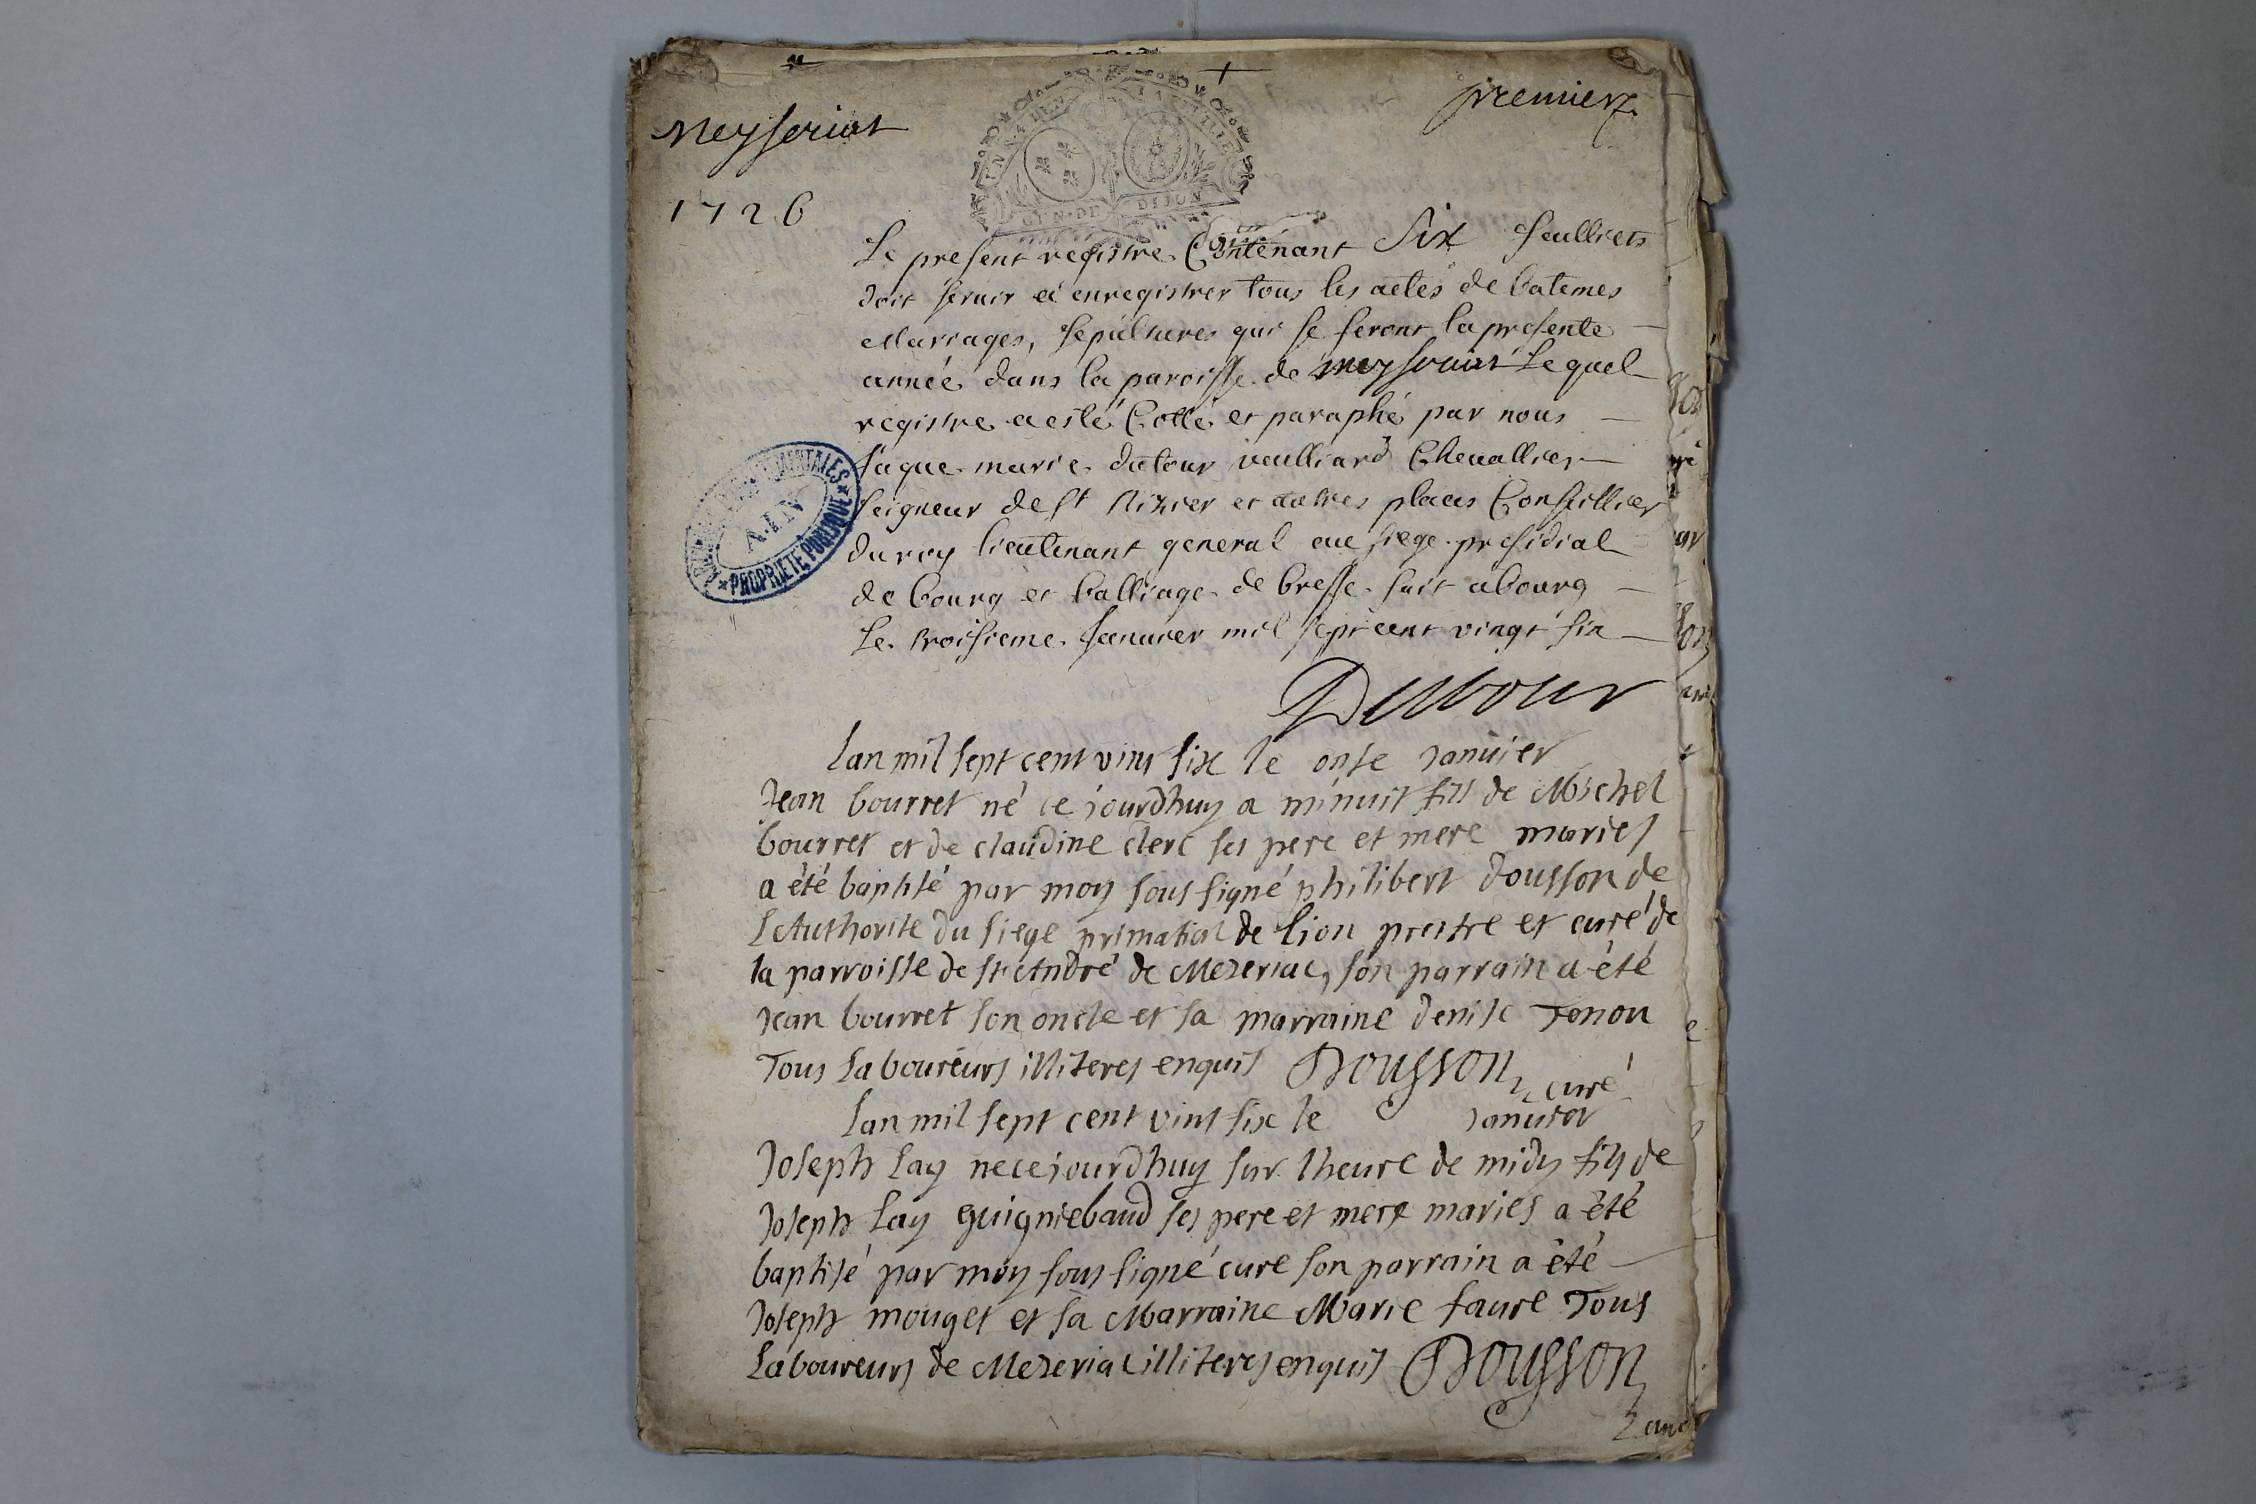 premier
Meyseriat
1726
GEN·DE DIJON
Le present registre Contenant Six feulliets
doit servir a enregistrer tous les actes de batemes
Mariages, sepultures qui se feront la presente
année dans la paroisse de meyseriat Le quel
registre a esté Cotté et paraphé par nous
Jaque marie dutour vuelliard Chevallier
seigneur de St Nizier et autres places Conseillier
du roy lieutenant general au siege presidial
de bourg et balliage de bresse fait a bourg
Le troisieme Janvier mil sept cent vingt six
Dutour
ARCHIVES DEPARTEMENTALES
AIN
PROPRIETE PUBLIQUE
Lan mil sept cent vint six le onse Janvier
Jean bourret né ce jourdhuy a minuit fils de Michel
bourret et de claudine clerc ses pere et mere mariés
a été baptisé par moy sous signé philibert dousson de
L'Authorité du siege primatial de Lion prestre et curé de
la parroisse de st André de Mezeriac, son parrain a été
Jean bourret son oncle et sa marraine denise Tenon
Tous Laboureurs illiteres enquis Dousson curé
Lan mil sept cent vint six le Janvier
Joseph Lay ne ce jourdhuy sur lheure de midy fils de
Joseph Lay guigniebaud ses pere et mere mariés a été
baptisé par moy sous signé curé son parrain a été
Joseph mouget et sa Marraine Marie faure Tous
Laboureurs de Mezeriac illiteres enquis Dousson